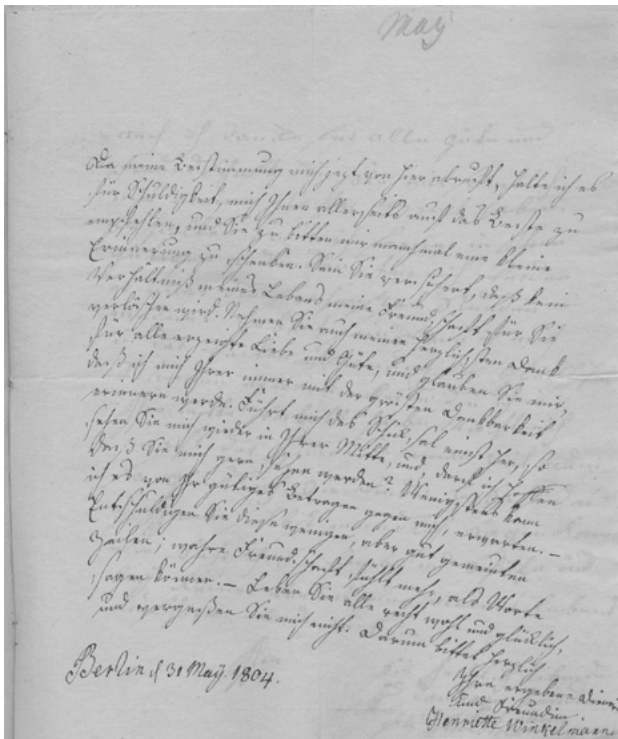 May
Da meine Bestimmung mich jezt von hier abruft, halte ich es
für Schuldigkeit, mich Ihnen allerseits auf das Beste zu
empfehlen, und Sie zu bitten mir manchmal eine kleine
Erinnerung zu schenken. Sein Sie versichert, daß kein
Verhältniß meines Lebens meine Freundschaft für Sie
verlöschen wird. Nehmen Sie auch meinen herzlichsten Dank
für alle erzeigte Liebe und Güte, und glauben Sie mir,
daß ich mich Ihrer immer mit der größten Dankbarkeit
erinnern werde. Führt mich das Schicksal einst her, so
sehen Sie mich wieder in Ihrer Mitte, und, darf ich hoffen
daß Sie mich gern sehen werden? Wenigstens kann
ich es von Ihr gütiges Betragen gegen mich, erwarten. –
Entschuldigen Sie diese wenigen, aber gut gemeinten
Zeilen; wahre Freundschaft fühlt mehr, als Worte
sagen können. – Leben Sie alle recht wohl und glücklich,
und vergeßen Sie mich nicht. Darum bittet herzlich
Ihre ergebene
und Freundin.
Henriette Winkelmann
Berlin d 31 May. 1804.